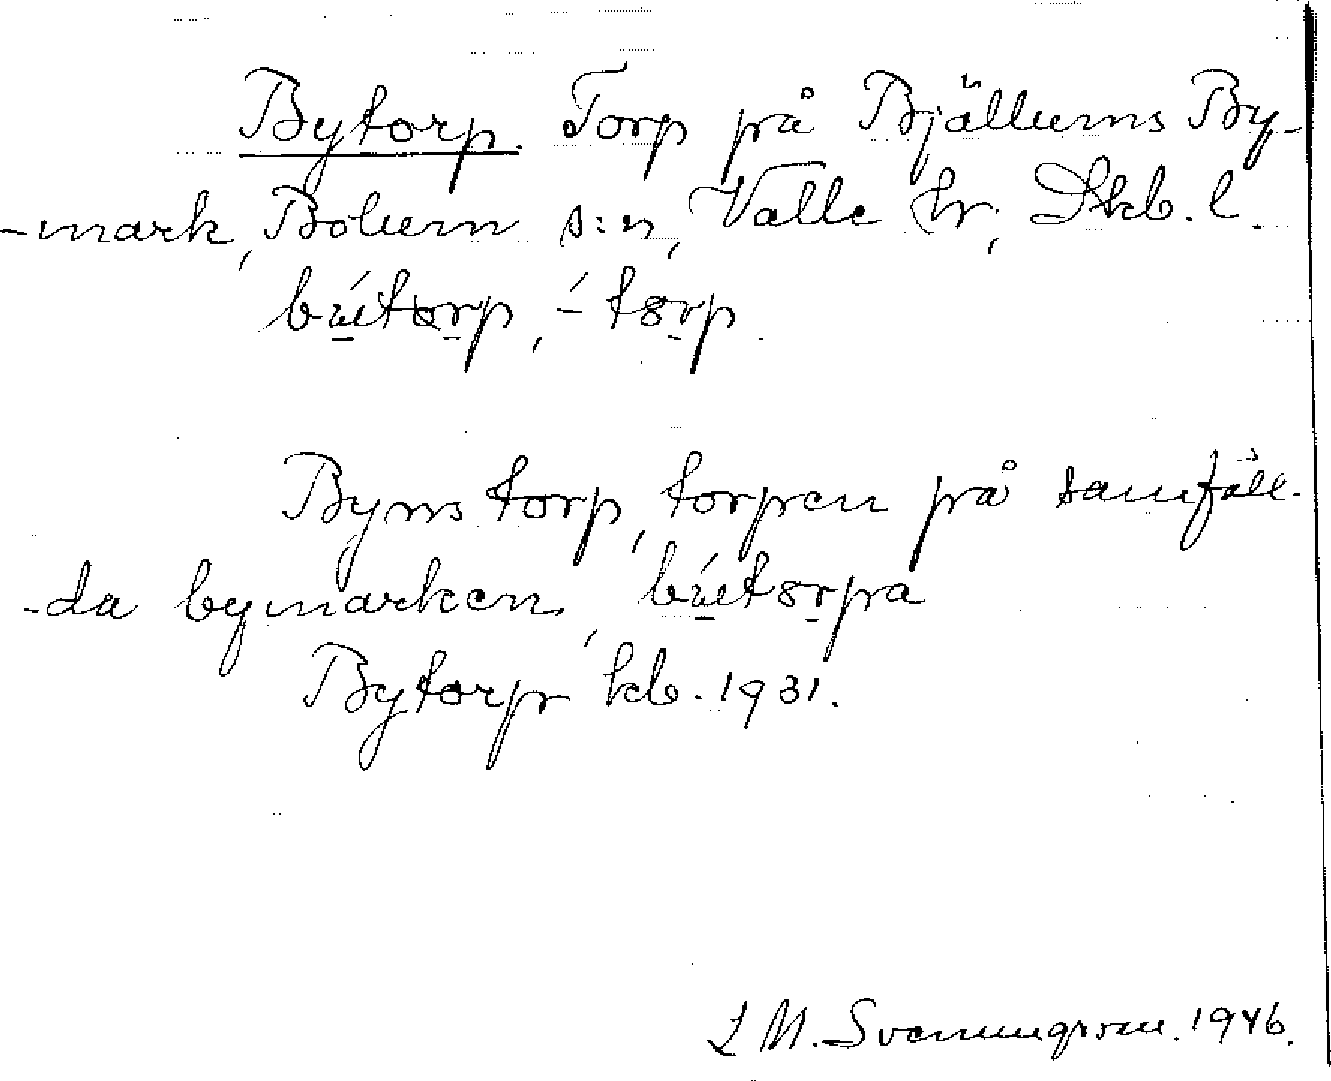 Bytorp. Torp på Bjällums By-
-mark, Bolum s:n, Valle hr, Skb. l.
Byns torp, torpen på samfäll-
-da bymarken,
Bytorp kb. 1931.
L M. Svenungsson. 1946.